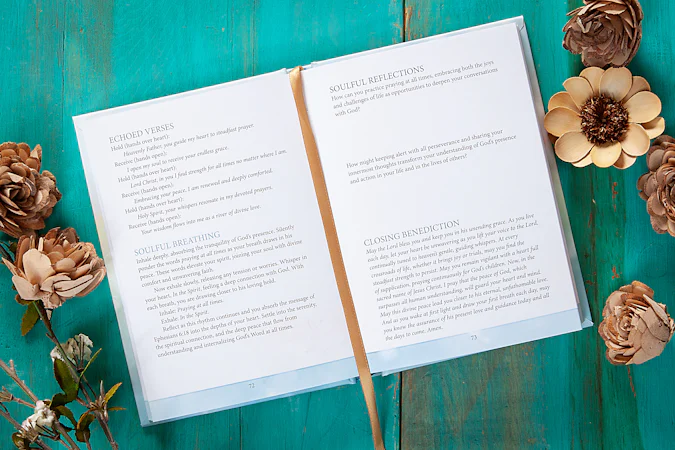 ECHOED VERSES
Hold (hands over heart):
Heavenly Father, you guide my heart to steadfast prayer.
Receive (hands open):
I open my soul to receive your endless grace.
Hold (hands over heart):
Lord Christ, in you I find strength for all times no matter where I am.
Receive (hands open):
Embracing your peace, I am renewed and deeply comforted.
Hold (hands over heart):
Holy Spirit, your whispers resonate in my devoted prayers.
Receive (hands open):
Your wisdom flows into me as a river of divine love.
SOULFUL BREATHING
Inhale deeply, absorbing the tranquility of God's presence. Silently
ponder the words praying at all times as your breath draws in his
peace. These words elevate your spirit, joining your soul with divine
comfort and unwavering faith.
Now exhale slowly, releasing any tension or worries. Whispers in
your heart, In the Spirit, feeling a deep connection with God. With
each breath, you are drawing closer to his loving hold.
Inhale: Praying at all times.
Exhale: In the Spirit.
Reflect as this rhythm continues and you absorb the message of
Ephesians 6:18 into the depths of your heart. Settle into the serenity,
the spiritual connection, and the deep peace that flow from
understanding and internalizing God's Word at all times.
72
SOULFUL REFLECTIONS
How can you practice praying at all times, embracing both the joys
and challenges of life as opportunities to deepen your conversations
with God?
How might keeping alert with all perseverance and sharing your
innermost thoughts transform your understanding of God's presence
and action in your life and in the lives of others?
CLOSING BENEDICTION
May the Lord bless you and keep you in his unending grace. As you live
each day, let your heart be unwavering as you lift your voice to the Lord,
continually tuned to heaven's gentle, guiding whispers. At every
crossroads of life, whether it brings joy or trials, may you find the
steadfast strength to persist. May you remain vigilant with a heart full
of supplication, praying continuously for God's children. Now, in the
sacred name of Jesus Christ, I pray that the peace of God, which
surpasses all human understanding, will guard your heart and mind.
May this divine peace lead you closer to his eternal, unfathomable love.
And as you wake at first light and draw your first breath each day, may
you know the assurance of his present love and guidance today and all
the days to come. Amen.
73